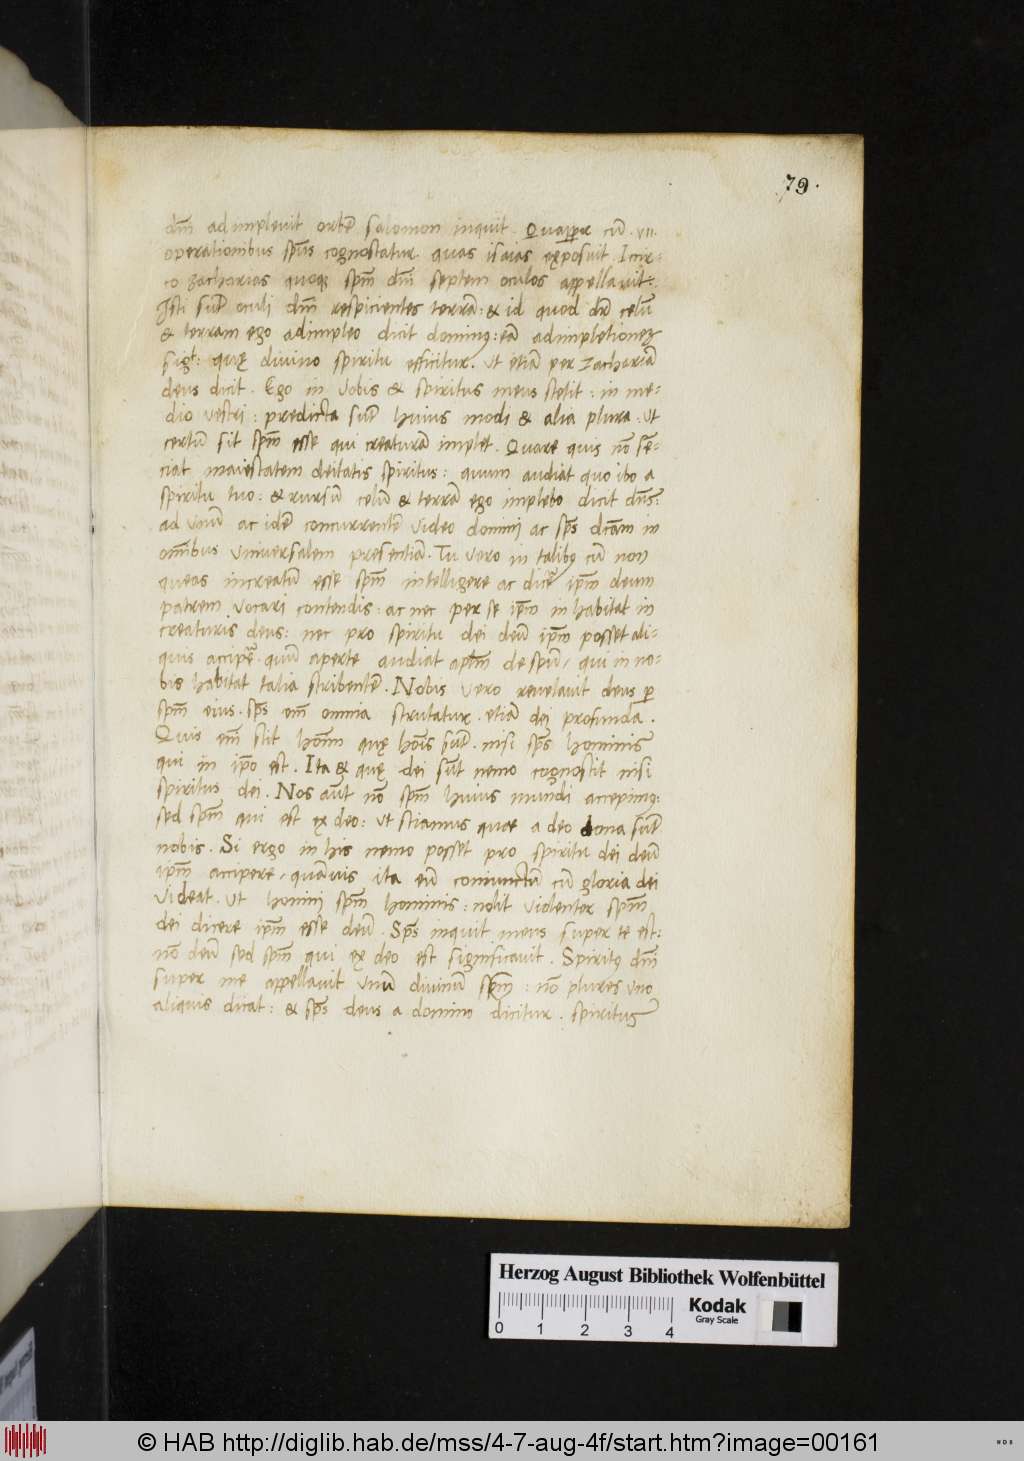 79.
dm̄ adimplevit orbē salomon inquit. Quapp̄r cū .vii.
operationibus spūs cognoscatur quas isaias ęxposuit. Iccir-
co zacharias quoqꝫ spm̄ dm̄ septem oculos appellavit:
Isti sūt oculi dm̄ respicientes terrā: & id quod dr̄ celū
& terram ego adimpleo dicit dominꝰ: eā adimpletionem
sigt: quę divino spiritu efficitur. ut etiā per zachariā
deus dicit. Ego in vobis & spiritus meus stetit: in me-
dio vestri: predicta sūt huius modi & alia plura. ut
certū sit spm̄ esse qui creaturā implet. Quare quis nō sē-
ciat maiestatem deitatis spiritus: quum audiat quo ibo a
spiritu tuo: & rursū celū & terrā ego implebo dicit dn̄s:
ad unū ac idē concurrentē video domini ac spūs dcām in
omībus universalem presentiā. Tu vero in talibꝰ cū non
queas increatū esse spm̄ intelligere ac dicē ipm̄ deum
patrem vocari contendis: ac nec per se ipm̄ inhabitat in
creaturis deus: nec pro spiritu dei deū ipm̄ posset ali-
quis accipē. quū aperte audiat aplm̄ de spū, qui in no-
bis habitat talia scribentē. Nobis vero revelavit deus p
spm̄ eius. spūs em̄ omnia scrutatur. etiā dei profunda.
Quis em̄ scit hoīm quę hoīs sūt. nisi spūs hominis
qui in ipo est. Ita & quę dei sūt nemo cognoscit nisi
spiritus dei. Nos aūt nō spm̄ huius mundi accepimꝰ:
sed spm̄ qui est ęx deo: ut sciamus quae a deo dona sūt
nobis. Si ergo in his nemo posset pro spiritu dei deū
ipm̄ accipere, quāvis ita eū coniunctū cū gloria dei
videat. ut homini spm̄ hominis: nolit violenter spm̄
dei dicere ipm̄ esse deū. Spūs inquit meus super te est:
nō deū sed spm̄ qui ęx deo est significavit. Spiritꝰ dm̄
super me appellavit unū divinū spm̄: nō plures uno
aliquis dicat: & spūs deus a domino dicitur. spiritus
Herzog August Bibliothek Wolfenbüttel
0 1 2 3 4
Kodak
Gray Scale
© HAB http://diglib.hab.de/mss/4-7-aug-4f/start.htm?image=00161